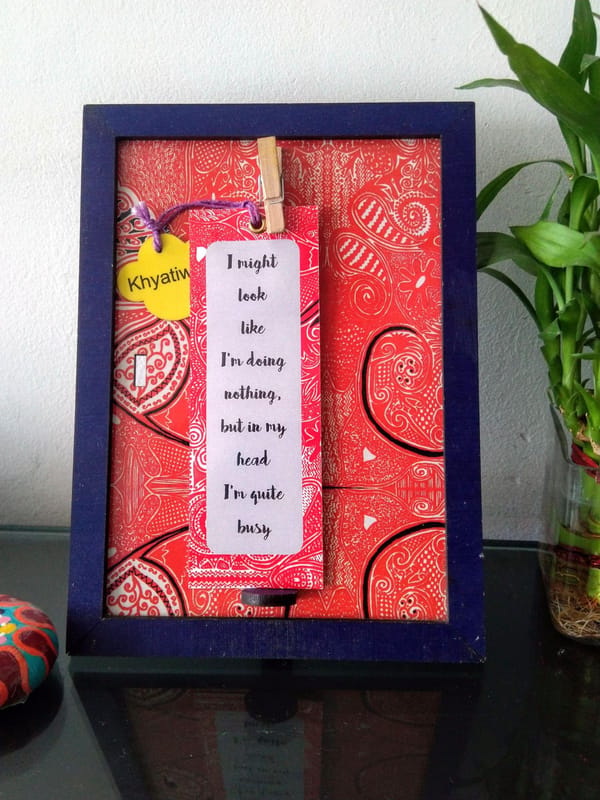 Khyatiw
I might
look
like
I'm doing
nothing,
but in my
head
I'm quite
busy